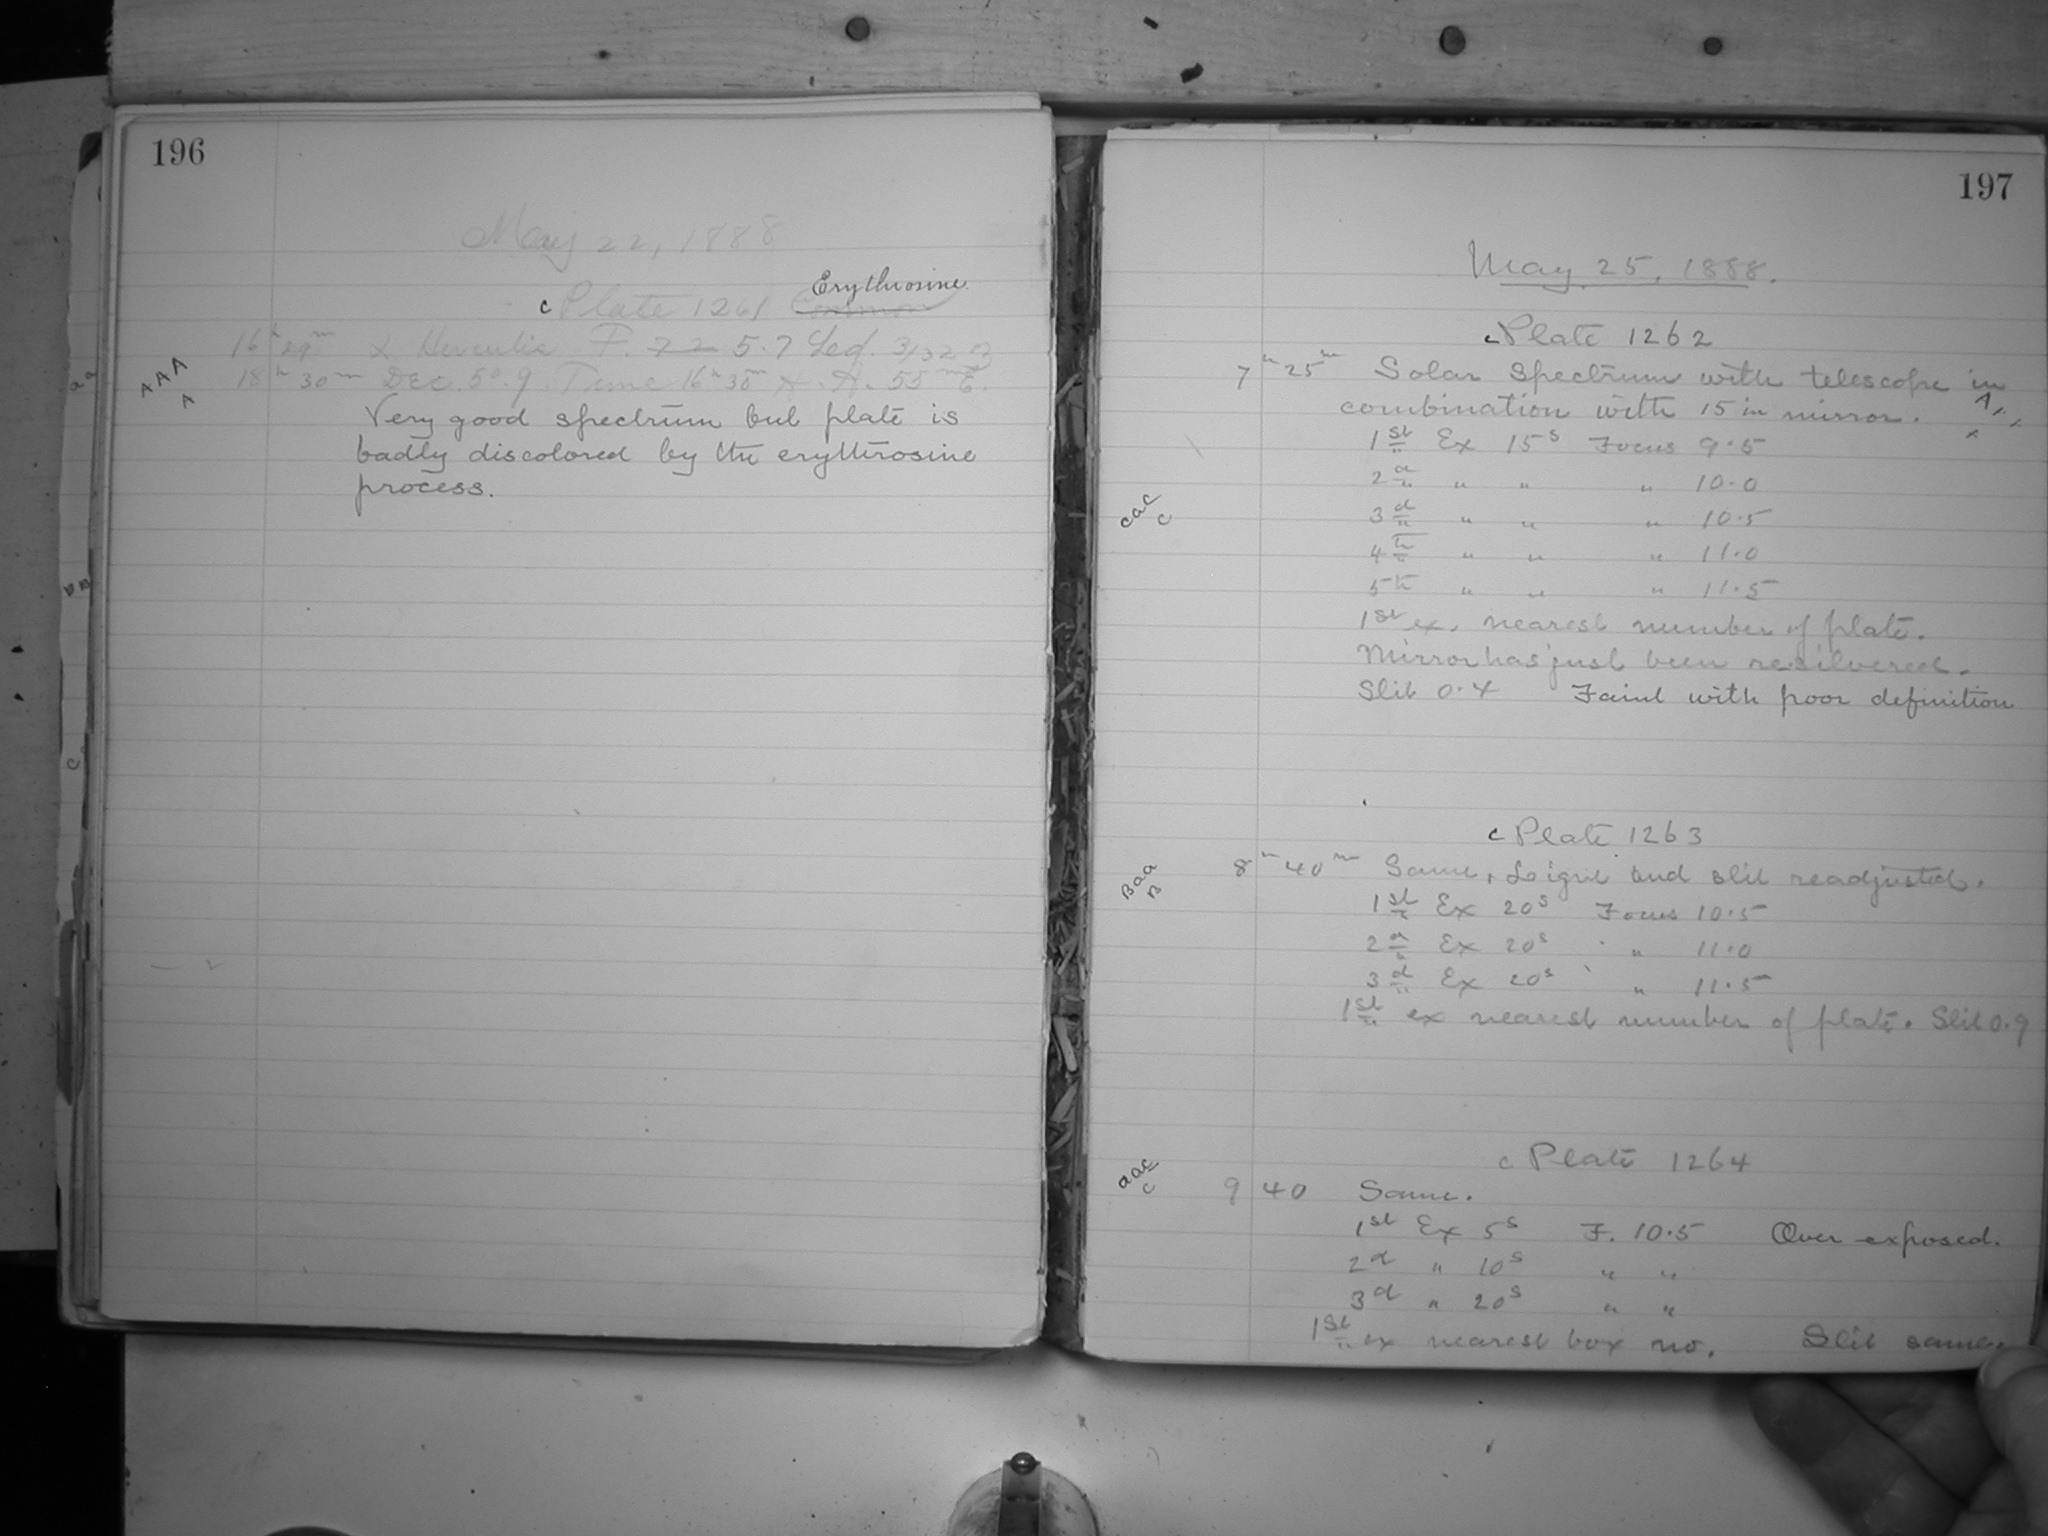 196
May 22, 1888
c Plate 1261 Erythrosine
16h 29m α Herculis F. 7.2 5.7 Led. 3/32
18h 30m Dec. 50.9 Time 16h 30m H. A. 55m E.
AAA
A
Very good spectrum but plate is
badly discolored by the erythrosine
process.
aa
BB
C
197
May 25, 1888.
c Plate 1262
7h 25m Solar Spectrum with telescope in
combination with 15 in mirror.
1st Ex 15s Focus 9.5
2d " " " 10.0
cac
c
3d " " " 10.5
4th " " " 11.0
5th " " " 11.5
1st ex. nearest number of plate.
Mirror has just been resilvered.
Slit 0.4 Faint with poor definition
c Plate 1263
Baa
B
8h 40m Same, and slit readjusted.
1st Ex 20s Focus 10.5
2d Ex 20s " 11.0
3d Ex 20s " 11.5
1st ex nearest number of plate. Slit 0.9
c Plate 1264
aac
c
9 40 Same.
1st Ex 5s F. 10.5 Over exposed.
2d " 10s " "
3d " 20s " "
1st ex nearest box no. Slit same.